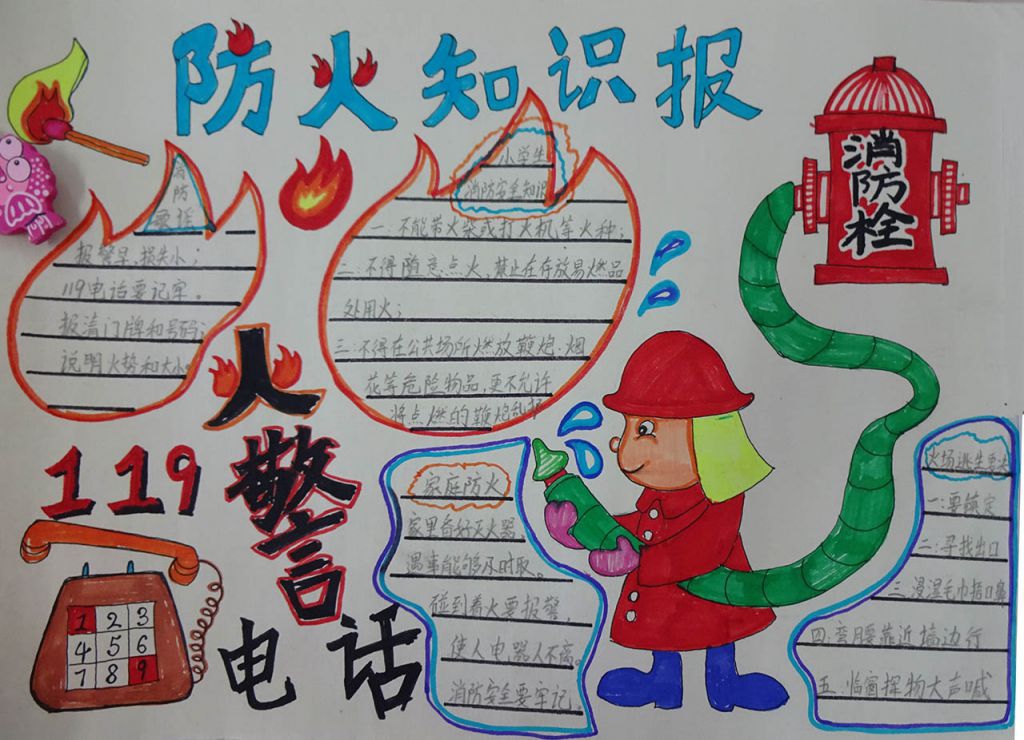 防火知识报
消防
报警早,损失小;
119电话要记牢。
报清门牌和号码;
说明火势和大小。
小学生
消防安全知识
一:不能带火柴或打火机等火种;
二:不得随意点火,禁止在存放易燃品
处用火;
三:不得在公共场所燃放鞭炮、烟
花等危险物品,更不允许
将点燃的鞭炮乱
消防栓
火警电话
119
1 2 3
4 5 6
7 8 9
家庭防火
家里备好灭火器
遇事能够及时取。
碰到着火要报警,
使人电器人不离。
消防安全要牢记。
火场逃生要
一:要镇定
二:寻找出口
三:浸湿毛巾捂口鼻
四:弯腰靠近墙边行
五:临窗挥物大声喊